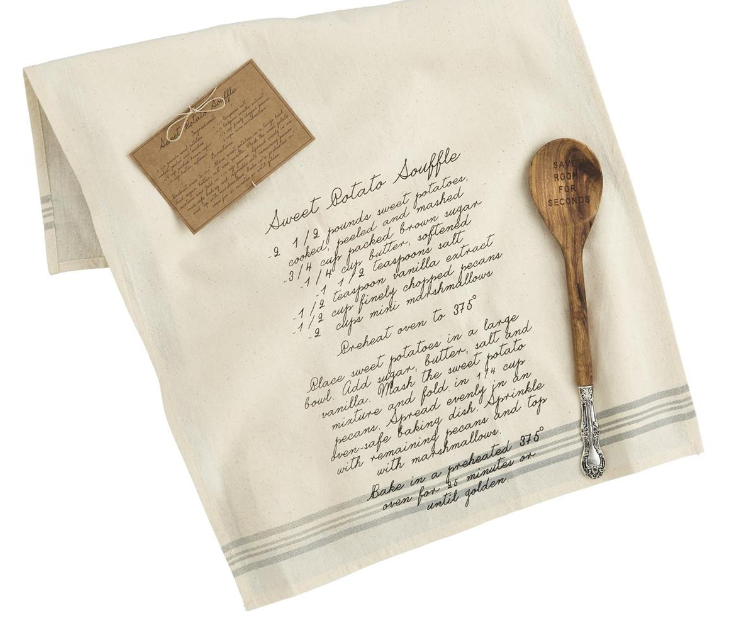 Sweet Potato Souffle
Sweet Potato Souffle
2 1/2 pounds sweet potatoes,
cooked, peeled and mashed
3/4 cup packed brown sugar
1/4 cup butter, softened
1 1/2 teaspoons salt
1/2 teaspoon vanilla extract
1/2 cup finely chopped pecans
2 cups mini marshmallows
Preheat oven to 375°
Place sweet potatoes in a large
bowl. Add sugar, butter, salt and
vanilla. Mash the sweet potato
mixture and fold in 1/4 cup
pecans. Spread evenly in an
oven-safe baking dish. Sprinkle
with remaining pecans and top
with marshmallows.
Bake in a preheated 375°
oven for 25 minutes or
until golden
SAVE
ROOM
FOR
SECONDS